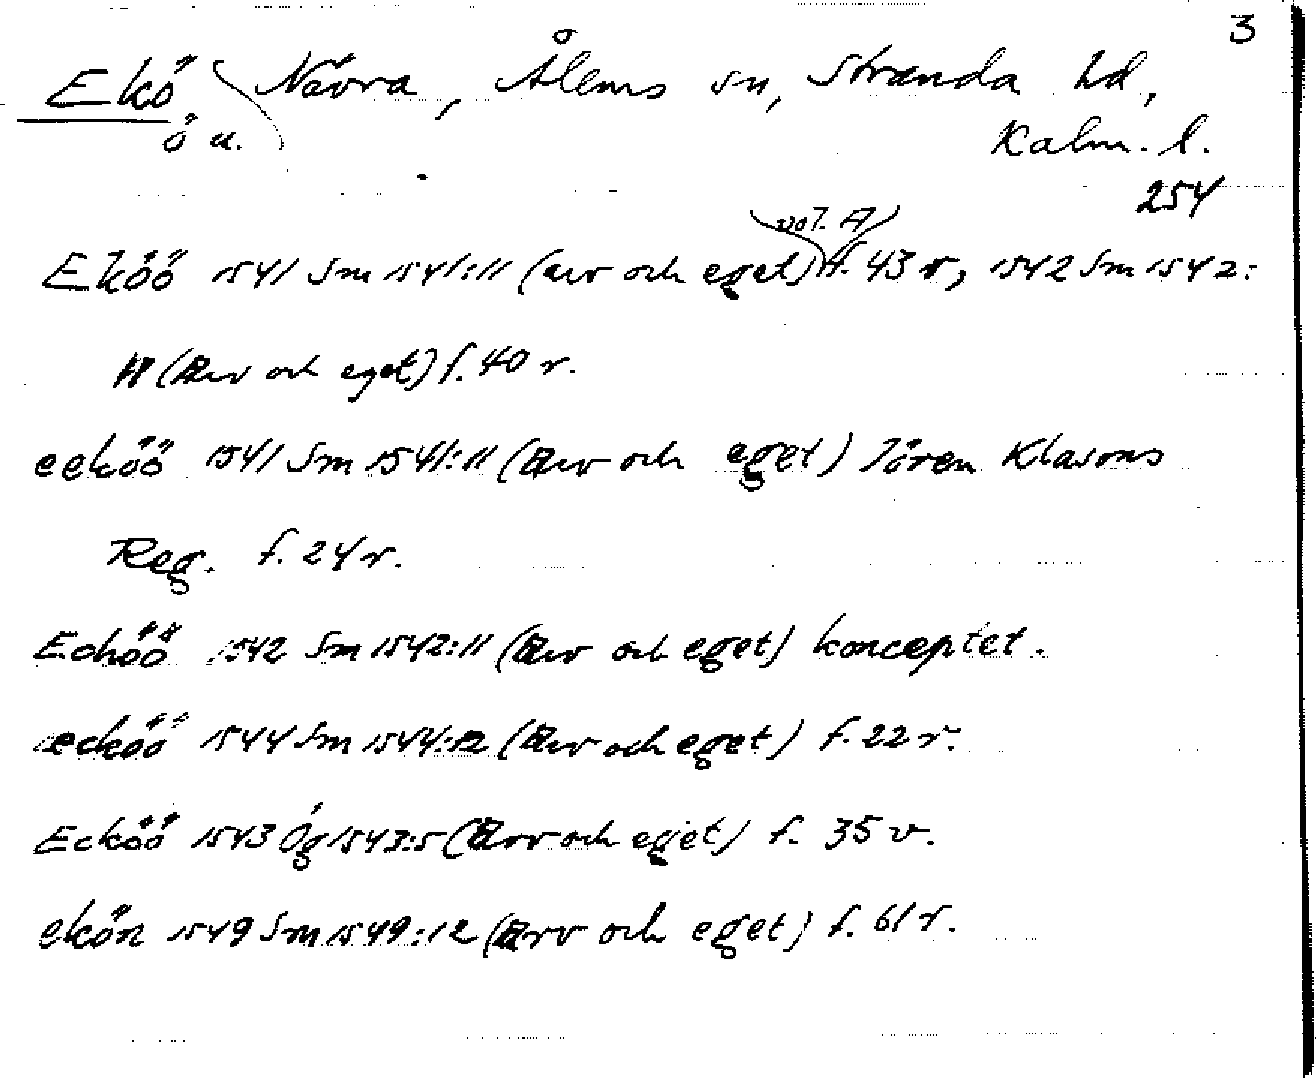 3
Ekö Návra, Ålems sn, Stranda hd,
ö u. Kalm. l.
254
vol. A
Eköö 1541 Sm 1541:11 (arv och eget) f. 43 r, 1542 Sm 1542:
11 (Arv och eget) f. 40 r.
eeköö 1541 Sm 1541:11 (Arv och eget) Jören Klasons
Reg. f. 24 r.
Echöö 1542 Sm 1542:11 (Arv och eget) konceptet.
ecköö 1544 Sm 1544:12 (Arv och eget) f. 22 r.
Ecköö 1543 Ög 1543:5 (Arv och eget) f. 35 v.
ekön 1549 Sm 1549:12 (Arv och eget) f. 61 r.